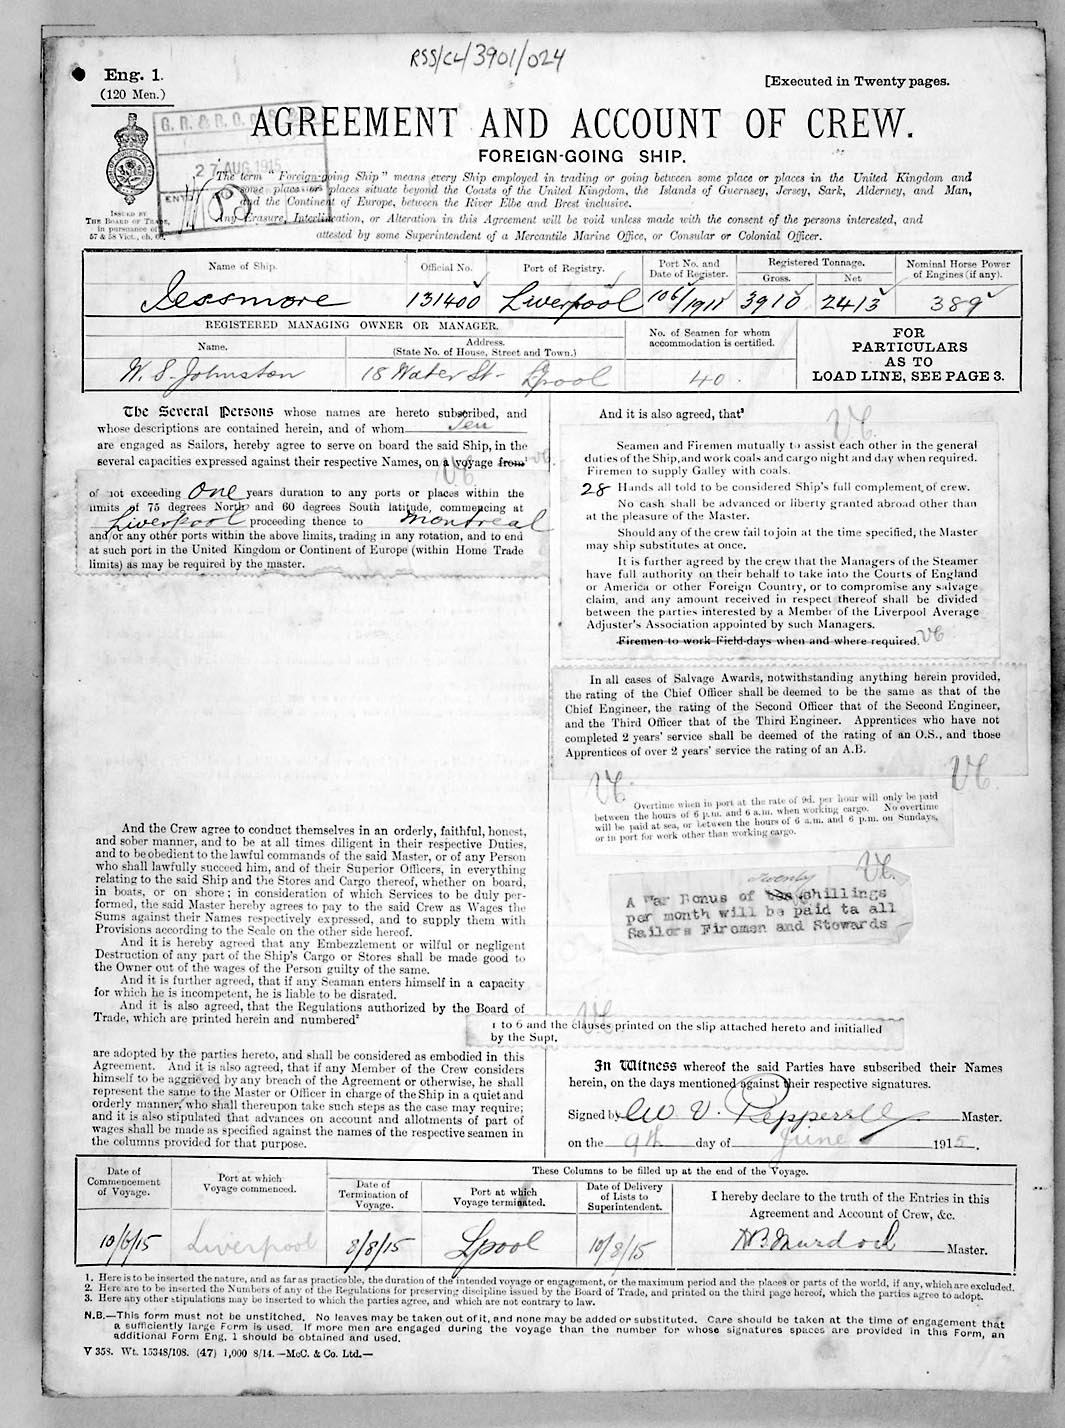 RSS/CL/3901/024
Eng. 1.
(120 Men.)
[Executed in Twenty pages.
AGREEMENT AND ACCOUNT OF CREW.
FOREIGN-GOING SHIP.
G. R. & R. O. of S.
27 AUG 1915
The term "Foreign-going Ship" means every Ship employed in trading or going between some place or places in the United Kingdom and
some place or places situate beyond the Coasts of the United Kingdom, the Islands of Guernsey, Jersey, Sark, Alderney, and Man,
and the Continent of Europe, between the River Elbe and Brest inclusive.
Any Erasure, Interlineation, or Alteration in this Agreement will be void unless made with the consent of the persons interested, and
attested by some Superintendent of a Mercantile Marine Office, or Consular or Colonial Officer.
ISSUED BY
THE BOARD OF TRADE,
in pursuance of
57 & 58 Vict., ch. 60.
Name of Ship. Official No. Port of Registry. Port No. and Date of Register. Registered Tonnage. Gross. Net Nominal Horse Power of Engines (if any).
Jessmore 131400 Liverpool 106/1911 3910 2413 389
REGISTERED MANAGING OWNER OR MANAGER.
Name. Address. (State No. of House, Street and Town.)
No. of Seamen for whom accommodation is certified.
W. S. Johnston 18 Water St. Lpool 40.
FOR
PARTICULARS
AS TO
LOAD LINE, SEE PAGE 3.
The Several Persons whose names are hereto subscribed, and
whose descriptions are contained herein, and of whom Ten
are engaged as Sailors, hereby agree to serve on board the said Ship, in the
several capacities expressed against their respective Names, on a voyage from¹
of not exceeding One years duration to any ports or places within the
limits of 75 degrees North and 60 degrees South latitude, commencing at
Liverpool proceeding thence to Montreal
and/or any other ports within the above limits, trading in any rotation, and to end
at such port in the United Kingdom or Continent of Europe (within Home Trade
limits) as may be required by the master.
And the Crew agree to conduct themselves in an orderly, faithful, honest,
and sober manner, and to be at all times diligent in their respective Duties,
and to be obedient to the lawful commands of the said Master, or of any Person
who shall lawfully succeed him, and of their Superior Officers, in everything
relating to the said Ship and the Stores and Cargo thereof, whether on board,
in boats, or on shore; in consideration of which Services to be duly per-
formed, the said Master hereby agrees to pay to the said Crew as Wages the
Sums against their Names respectively expressed, and to supply them with
Provisions according to the Scale on the other side hereof.
And it is hereby agreed that any Embezzlement or wilful or negligent
Destruction of any part of the Ship's Cargo or Stores shall be made good to
the Owner out of the wages of the Person guilty of the same.
And it is further agreed, that if any Seaman enters himself in a capacity
for which he is incompetent, he is liable to be disrated.
And it is also agreed, that the Regulations authorized by the Board of
Trade, which are printed herein and numbered²
1 to 6 and the clauses printed on the slip attached hereto and initialled
by the Supt.
are adopted by the parties hereto, and shall be considered as embodied in this
Agreement. And it is also agreed, that if any Member of the Crew considers
himself to be aggrieved by any breach of the Agreement or otherwise, he shall
represent the same to the Master or Officer in charge of the Ship in a quiet and
orderly manner, who shall thereupon take such steps as the case may require;
and it is also stipulated that advances on account and allotments of part of
wages shall be made as specified against the names of the respective seamen in
the columns provided for that purpose.
And it is also agreed, that³
Seamen and Firemen mutually to assist each other in the general
duties of the Ship, and work coals and cargo night and day when required.
Firemen to supply Galley with coals.
28 Hands all told to be considered Ship's full complement of crew.
No cash shall be advanced or liberty granted abroad other than
at the pleasure of the Master.
Should any of the crew fail to join at the time specified, the Master
may ship substitutes at once.
It is further agreed by the crew that the Managers of the Steamer
have full authority on their behalf to take into the Courts of England
or America or other Foreign Country, or to compromise any salvage
claim, and any amount received in respect thereof shall be divided
between the parties interested by a Member of the Liverpool Average
Adjuster's Association appointed by such Managers.
Firemen to work Field-days when and where required.
In all cases of Salvage Awards, notwithstanding anything herein provided,
the rating of the Chief Officer shall be deemed to be the same as that of the
Chief Engineer, the rating of the Second Officer that of the Second Engineer,
and the Third Officer that of the Third Engineer. Apprentices who have not
completed 2 years' service shall be deemed of the rating of an O.S., and those
Apprentices of over 2 years' service the rating of an A.B.
Overtime when in port at the rate of 9d. per hour will only be paid
between the hours of 6 p.m. and 6 a.m. when working cargo. No overtime
will be paid at sea, or between the hours of 6 a.m. and 6 p.m. on Sundays,
or in port for work other than working cargo.
twenty
A War Bonus of ten shillings
per month will be paid ta all
Sailors Firemen and Stewards
In Witness whereof the said Parties have subscribed their Names
herein, on the days mentioned against their respective signatures.
Signed by W. V. Pepperell Master.
on the 9th day of June 1915.
These Columns to be filled up at the end of the Voyage.
Date of Commencement of Voyage. Port at which Voyage commenced. Date of Termination of Voyage. Port at which Voyage terminated. Date of Delivery of Lists to Superintendent.
I hereby declare to the truth of the Entries in this
Agreement and Account of Crew, &c.
10/6/15 Liverpool 8/8/15 Lpool 10/8/15 Murdoch Master.
1. Here is to be inserted the nature, and as far as practicable, the duration of the intended voyage or engagement, or the maximum period and the places or parts of the world, if any, which are excluded.
2. Here are to be inserted the Numbers of any of the Regulations for preserving discipline issued by the Board of Trade, and printed on the third page hereof, which the parties agree to adopt.
3. Here any other stipulations may be inserted to which the parties agree, and which are not contrary to law.
N.B.—This form must not be unstitched. No leaves may be taken out of it, and none may be added or substituted. Care should be taken at the time of engagement that
a sufficiently large Form is used. If more men are engaged during the voyage than the number for whose signatures spaces are provided in this Form, an
additional Form Eng. 1 should be obtained and used.
V 358. Wt. 15348/108. (47) 1,000 8/14.—McC. & Co. Ltd.—